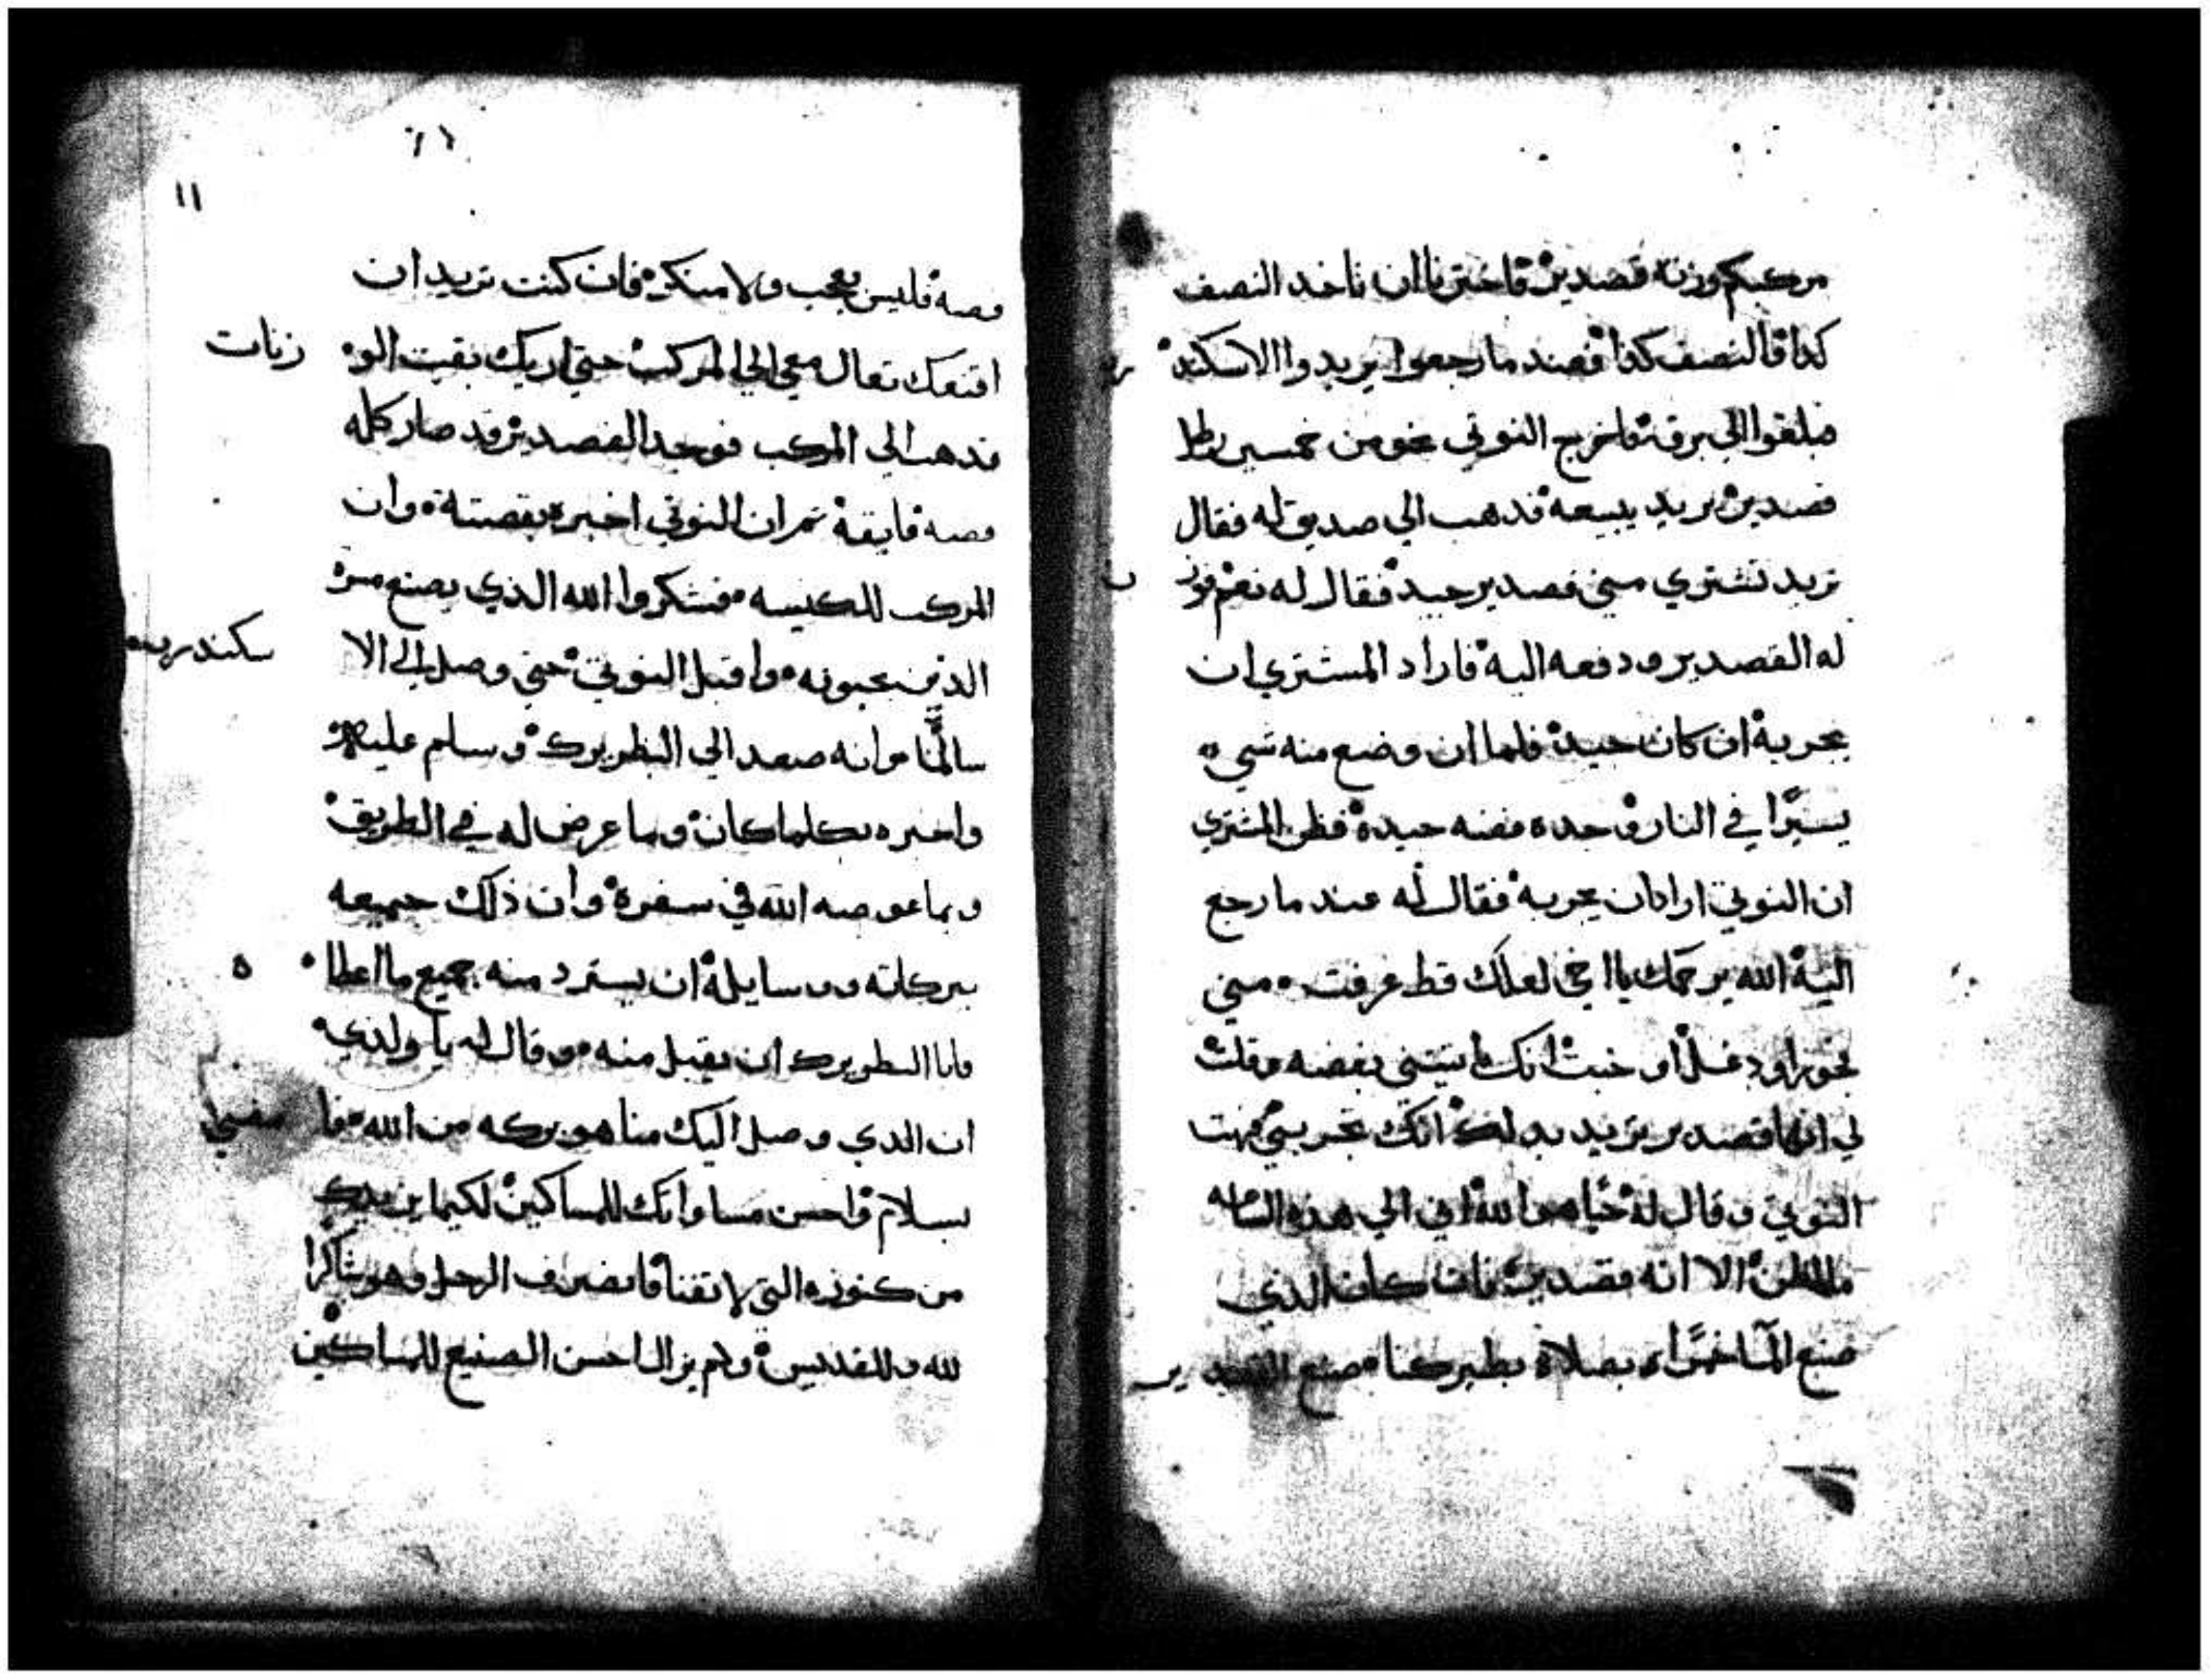 مركبكم وزنة قصدير فاخترنا ان ناخد النصف
كدا والنصف كدا فعند ما رجعوا يريدوا الاسكند ر
فبلغوا الي برقة فاخرج النوتي نحو من خمسين رطل
قصدير يريد يبيعه فدهب الي صديق له فقال
تريد تشتري مني قصدير جيد فقال له نعم فوز ن
له القصدير ودفعه اليه فاراد المشتري ان
يجربه ان كان جيد فلما ان وضع منه شي
يسيرًا في النار وجده فضه جيدة فظن المشتري
ان النوتي اراد ان يجربه فقال له عند ما رجع
اليه الله يرحمك يا اخي لعلك قط عرفت مني
او دغل او خبث انك اتيتني بفضه وقلت
لي انها قصدير تريد بدلك انك تجربني فبهت
النوتي وقال له حيا هو الله اني الي هذه الساعه
ما اظن الا انه قصدير فان كان الذي
صنع المآ خمرًا بصلاة بطيركنا صنع القصد ير
١١
فضه فليس بعجب ولا منكر فان كنت تريد ان
اقنعك تعال معي الي المركب حتي اريك بقيت الو زنات
فدهب الي المركب فوجد القصدير قد صار كله
فضه فايقة ثم ان النوتي اخبره بقصته وان
المركب للكنيسه فشكروا الله الذي يصنع مسرة
الذين يحبونه واقبل النوتي حتي وصل الي الا سكندريه
سالمًا وانه صعد الي البطريرك وسلم عليه
واخبره بكلما كان وما عرض له في الطريق
وبما عوضه الله في سفره وان ذلك جميعه
ببركاته وسايله ان يسترد منه جميع ما اعطا ه
فابا البطريرك ان يقبل منه وقال له يا ولدي
ان الدي وصل اليك منا هو بركه من الله فا مضي
بسلام واحسن مساواتك للمساكين لكيما يزيدك
من كنوزه التي لا تفنا فانصرف الرجل وهو شاكرا
لله وللقديس ولم يزال احسن الصنيع للمساكين